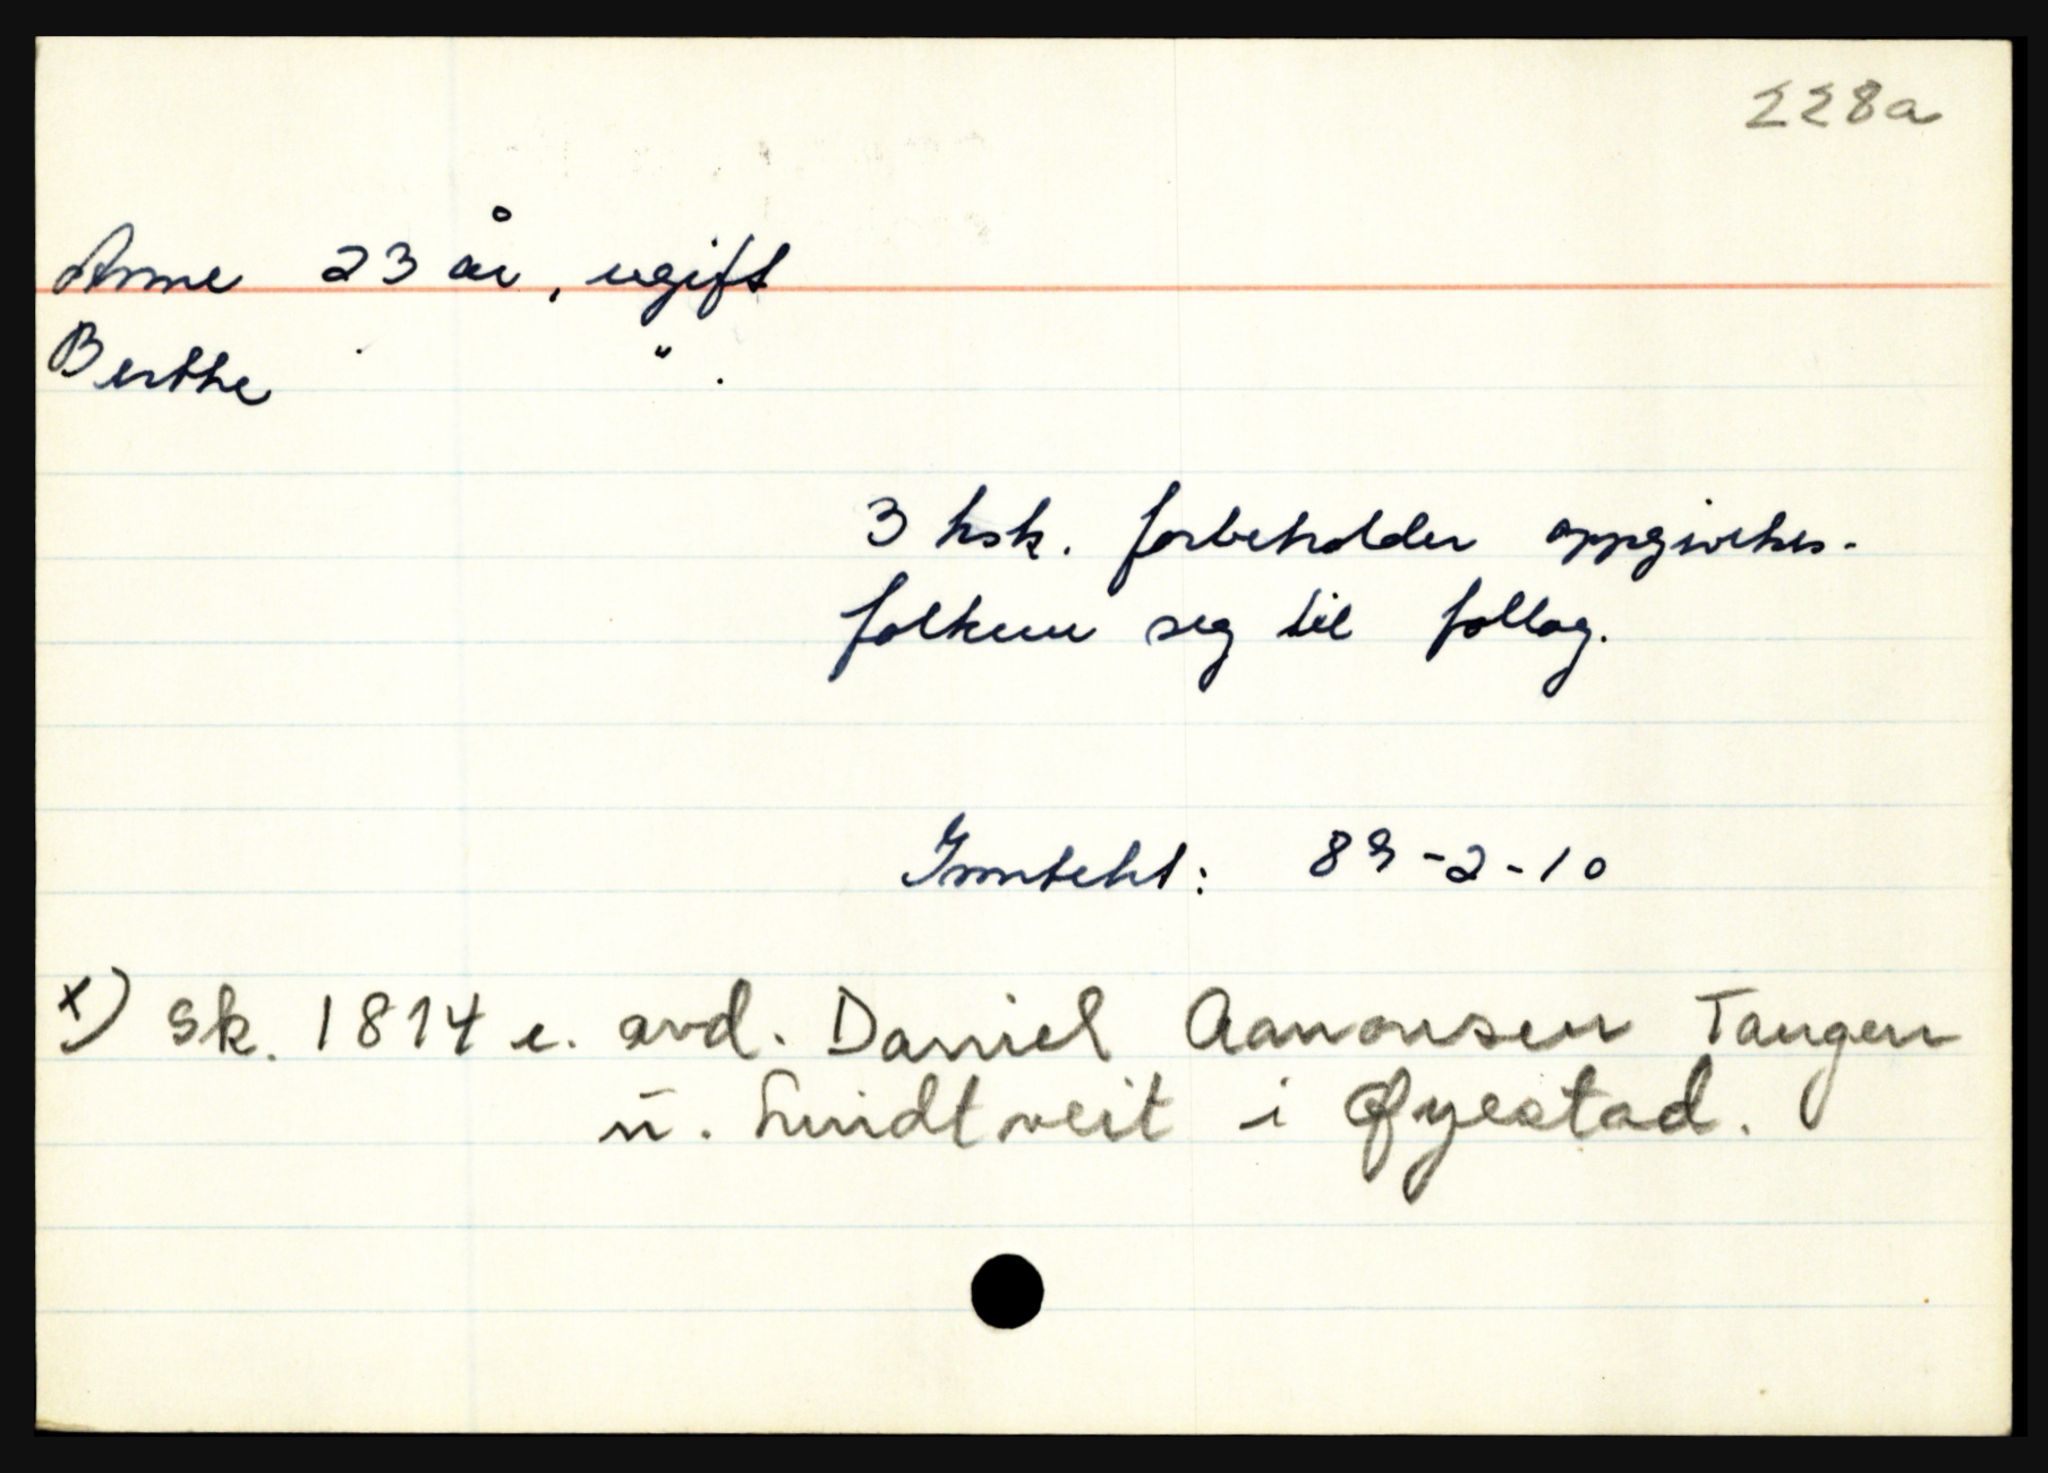 228a
Anne 23 år, ugift
Berthe " .
3 hsk. forbeholder oppgivelses-
folkene seg til follog.
Inntekt: 89-2-10
x) sk. 1814 e. avd. Daniel Aanonsen Tangen
u. Lundtveit i Øyestad.